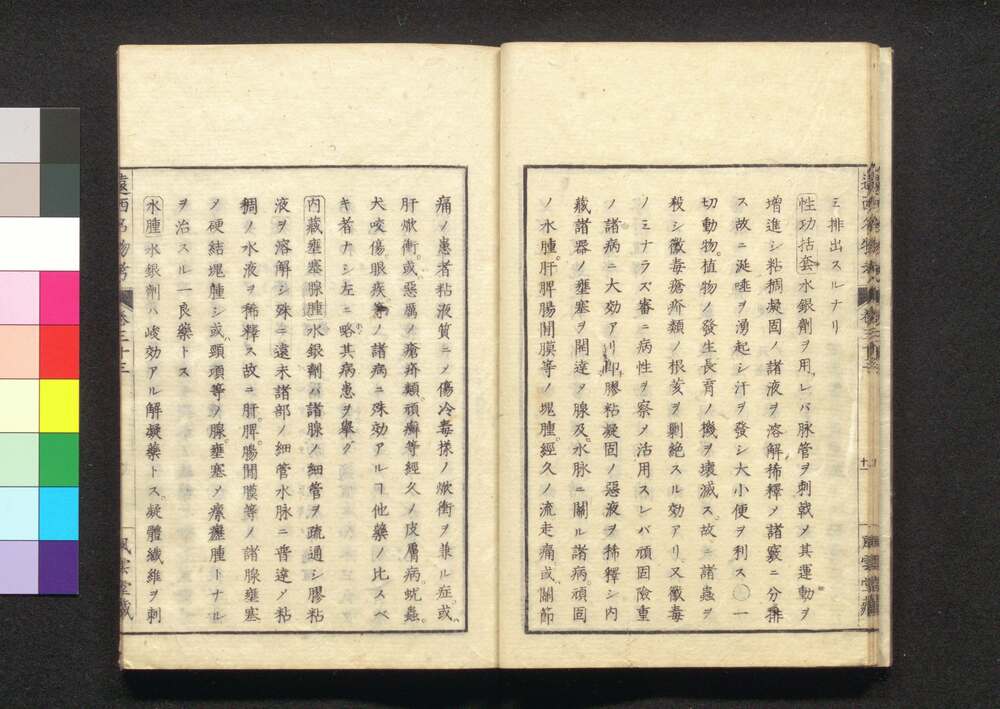 ミ排出スルナリ
性功括套水銀劑ヲ用レバ脉管ヲ刺戟メ其運動ヲ
増進シ粘稠凝固ノ諸液ヲ溶解稀釋メ諸竅ニ分排
ス故ニ涎唾ヲ湧起シ汗ヲ發シ大小便ヲ利ス○一
切動物。植物ノ發生長育ノ機ヲ壊滅ス。故ニ諸蟲ヲ
殺シ黴毒瘡疥類ノ根荄ヲ剿絶スル効アリ又黴毒
ノミナラズ審ニ病性ヲ察メ活用スレバ頑固險重
ノ諸病ニ大効アリ即膠粘凝固ノ惡液ヲ稀釋シ内
藏諸器ノ壅塞ヲ開達メ腺及水脉ニ關ル諸病。頑固
ノ水腫。肝脾腸間膜等ノ塊腫。經久ノ流走痛或關節
痛ノ患者粘液質ニメ傷冷毒様ノ焮衝ヲ兼ル症或
肝焮衝。或惡厲ノ瘡疥類。頑癬等經久ノ皮膚病。蚘蟲。
犬咬傷。眼疾等ノ諸病ニ殊効アルヿ他藥ノ比スベ
キ者ナシ左ニ略其病患ヲ擧グ
内藏壅塞腺腫水銀劑ハ諸腺ノ細管ヲ疏通シ膠粘
液ヲ溶解シ殊ニ遠末諸部ノ細管水脉ニ普達メ粘
稠ノ水液ヲ稀釋ス故ニ肝。脾。腸間膜等ノ諸腺壅塞
メ硬結塊腫シ或頸項等ノ腺。壅塞メ瘰癧腫トナル
ヲ治スル一良藥トス
水腫水銀劑ハ峻効アル解凝藥トス。凝體纖維ヲ刺
遠西名物考
卷三十三
風雲堂藏